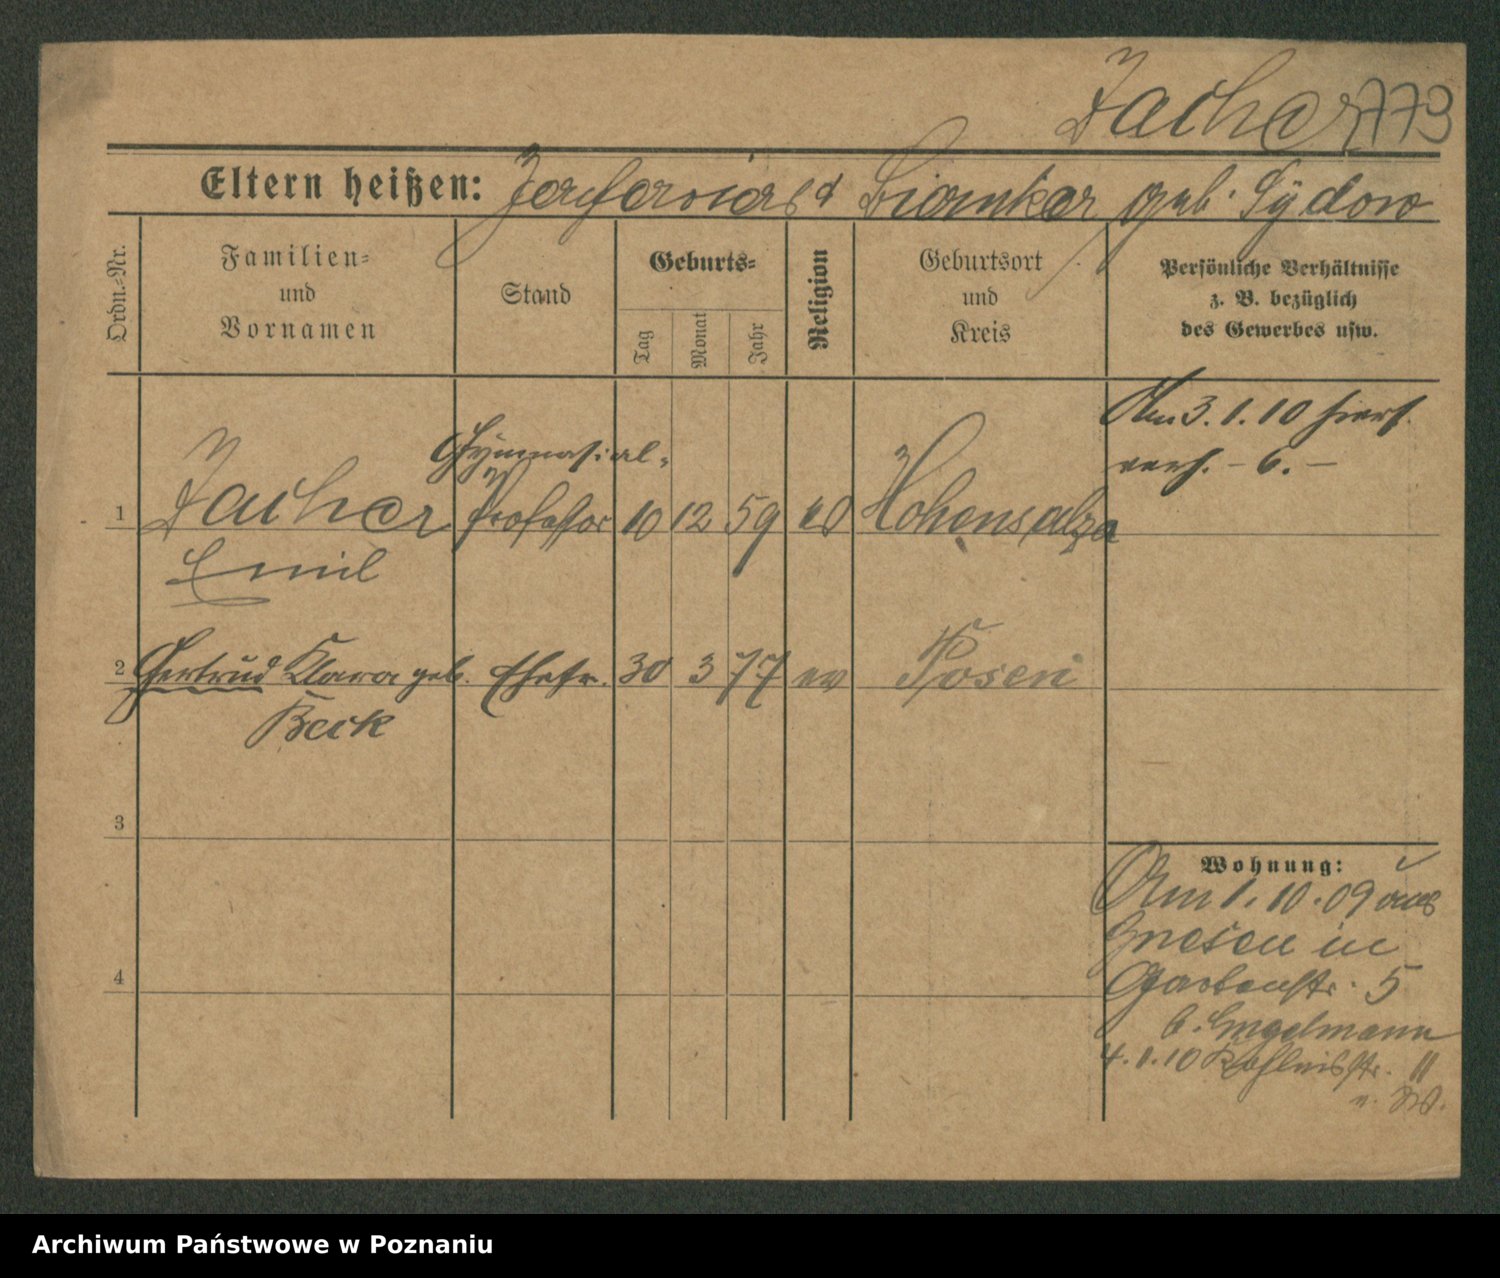 Zacher 773
Eltern heißen: Zacharias & Bianka geb. Sydow
Ordn.=Nr.
Familien=
und
Vornamen
Stand
Geburts=
Tag
Monat
Jahr
Religion
Geburtsort
und
Kreis
Persönliche Verhältnisse
z. B. bezüglich
des Gewerbes usw.
Am 3. 1. 10 hiers.
verh. – 6. –
Gymnasial-
1 Zacher Professor 10 12 59 Hohensalza
Emil
2 Gertrud Klara geb. Ehefr. 30 3 77 ev Posen
Beck
3
Wohnung:
Am 1. 10. 09 aus
Gnesen in
4
Gartenstr. 5
b. Engelmann
4. 1. 10 11